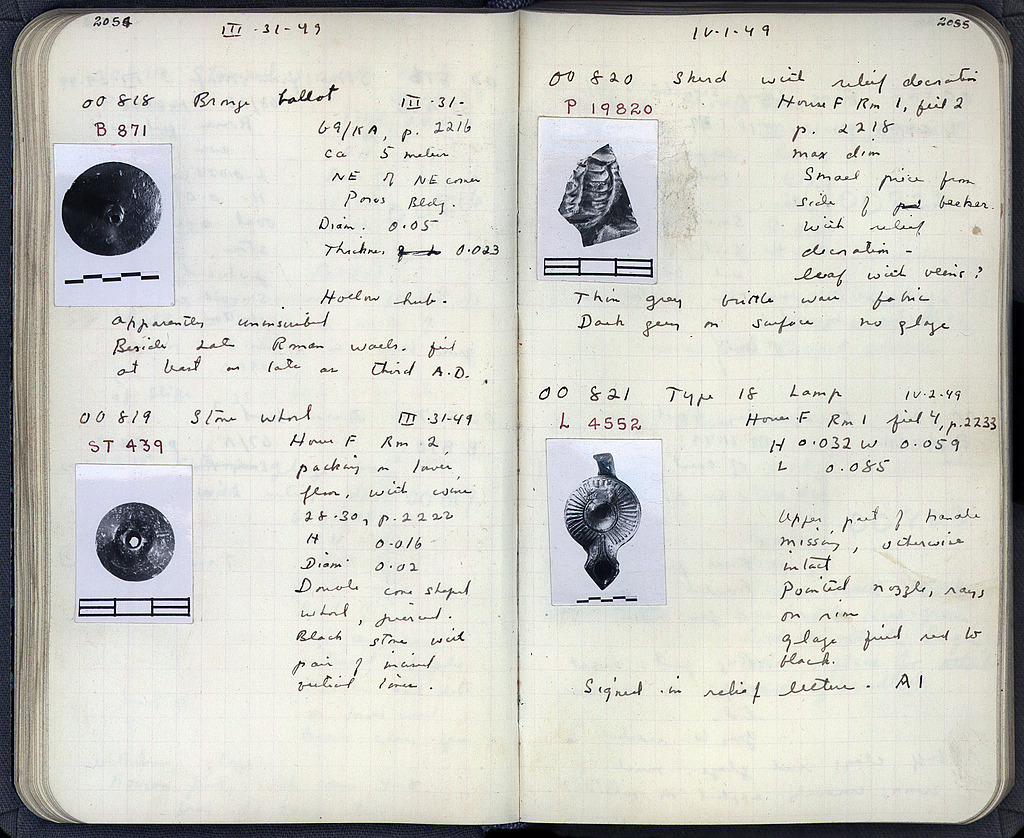 2054
III · 31 - 49
OO 818 Bronze ballot III · 31 -
B 871
69/KA, p. 2216
ca 5 meters
NE of NE corner
Poros Bldg.
Diam. 0.05
Thickness 0.023
Hollow hub.
Apparently uninscribed
Beside Late Roman walls. fill
at least as late as third A.D.
OO 819 Stone whorl III · 31-49
ST 439
House F Rm. 2
packing on lower
floor, with coins
28-30, p. 2222
H 0.016
Diam 0.02
Double cone shaped
whorl, pierced.
Black stone with
pair of incised
vertical lines.
2055
IV · 1 · 49
OO 820 Sherd with relief decoration
P 19820
House F Rm 1, fill 2
p. 2218
max dim
Small piece from
side of beaker.
with relief
decoration -
leaf with veins?
Thin gray brittle ware fabric
Dark grey on surface no glaze
OO 821 Type 18 Lamp IV · 2 · 49
L 4552
House F Rm 1 fill 4, p. 2233
H 0.032 W 0.059
L 0.085
Upper part of handle
missing, otherwise
intact
Pointed nozzle, rays
on rim
glaze fired red to
black.
Signed in relief letters. A I